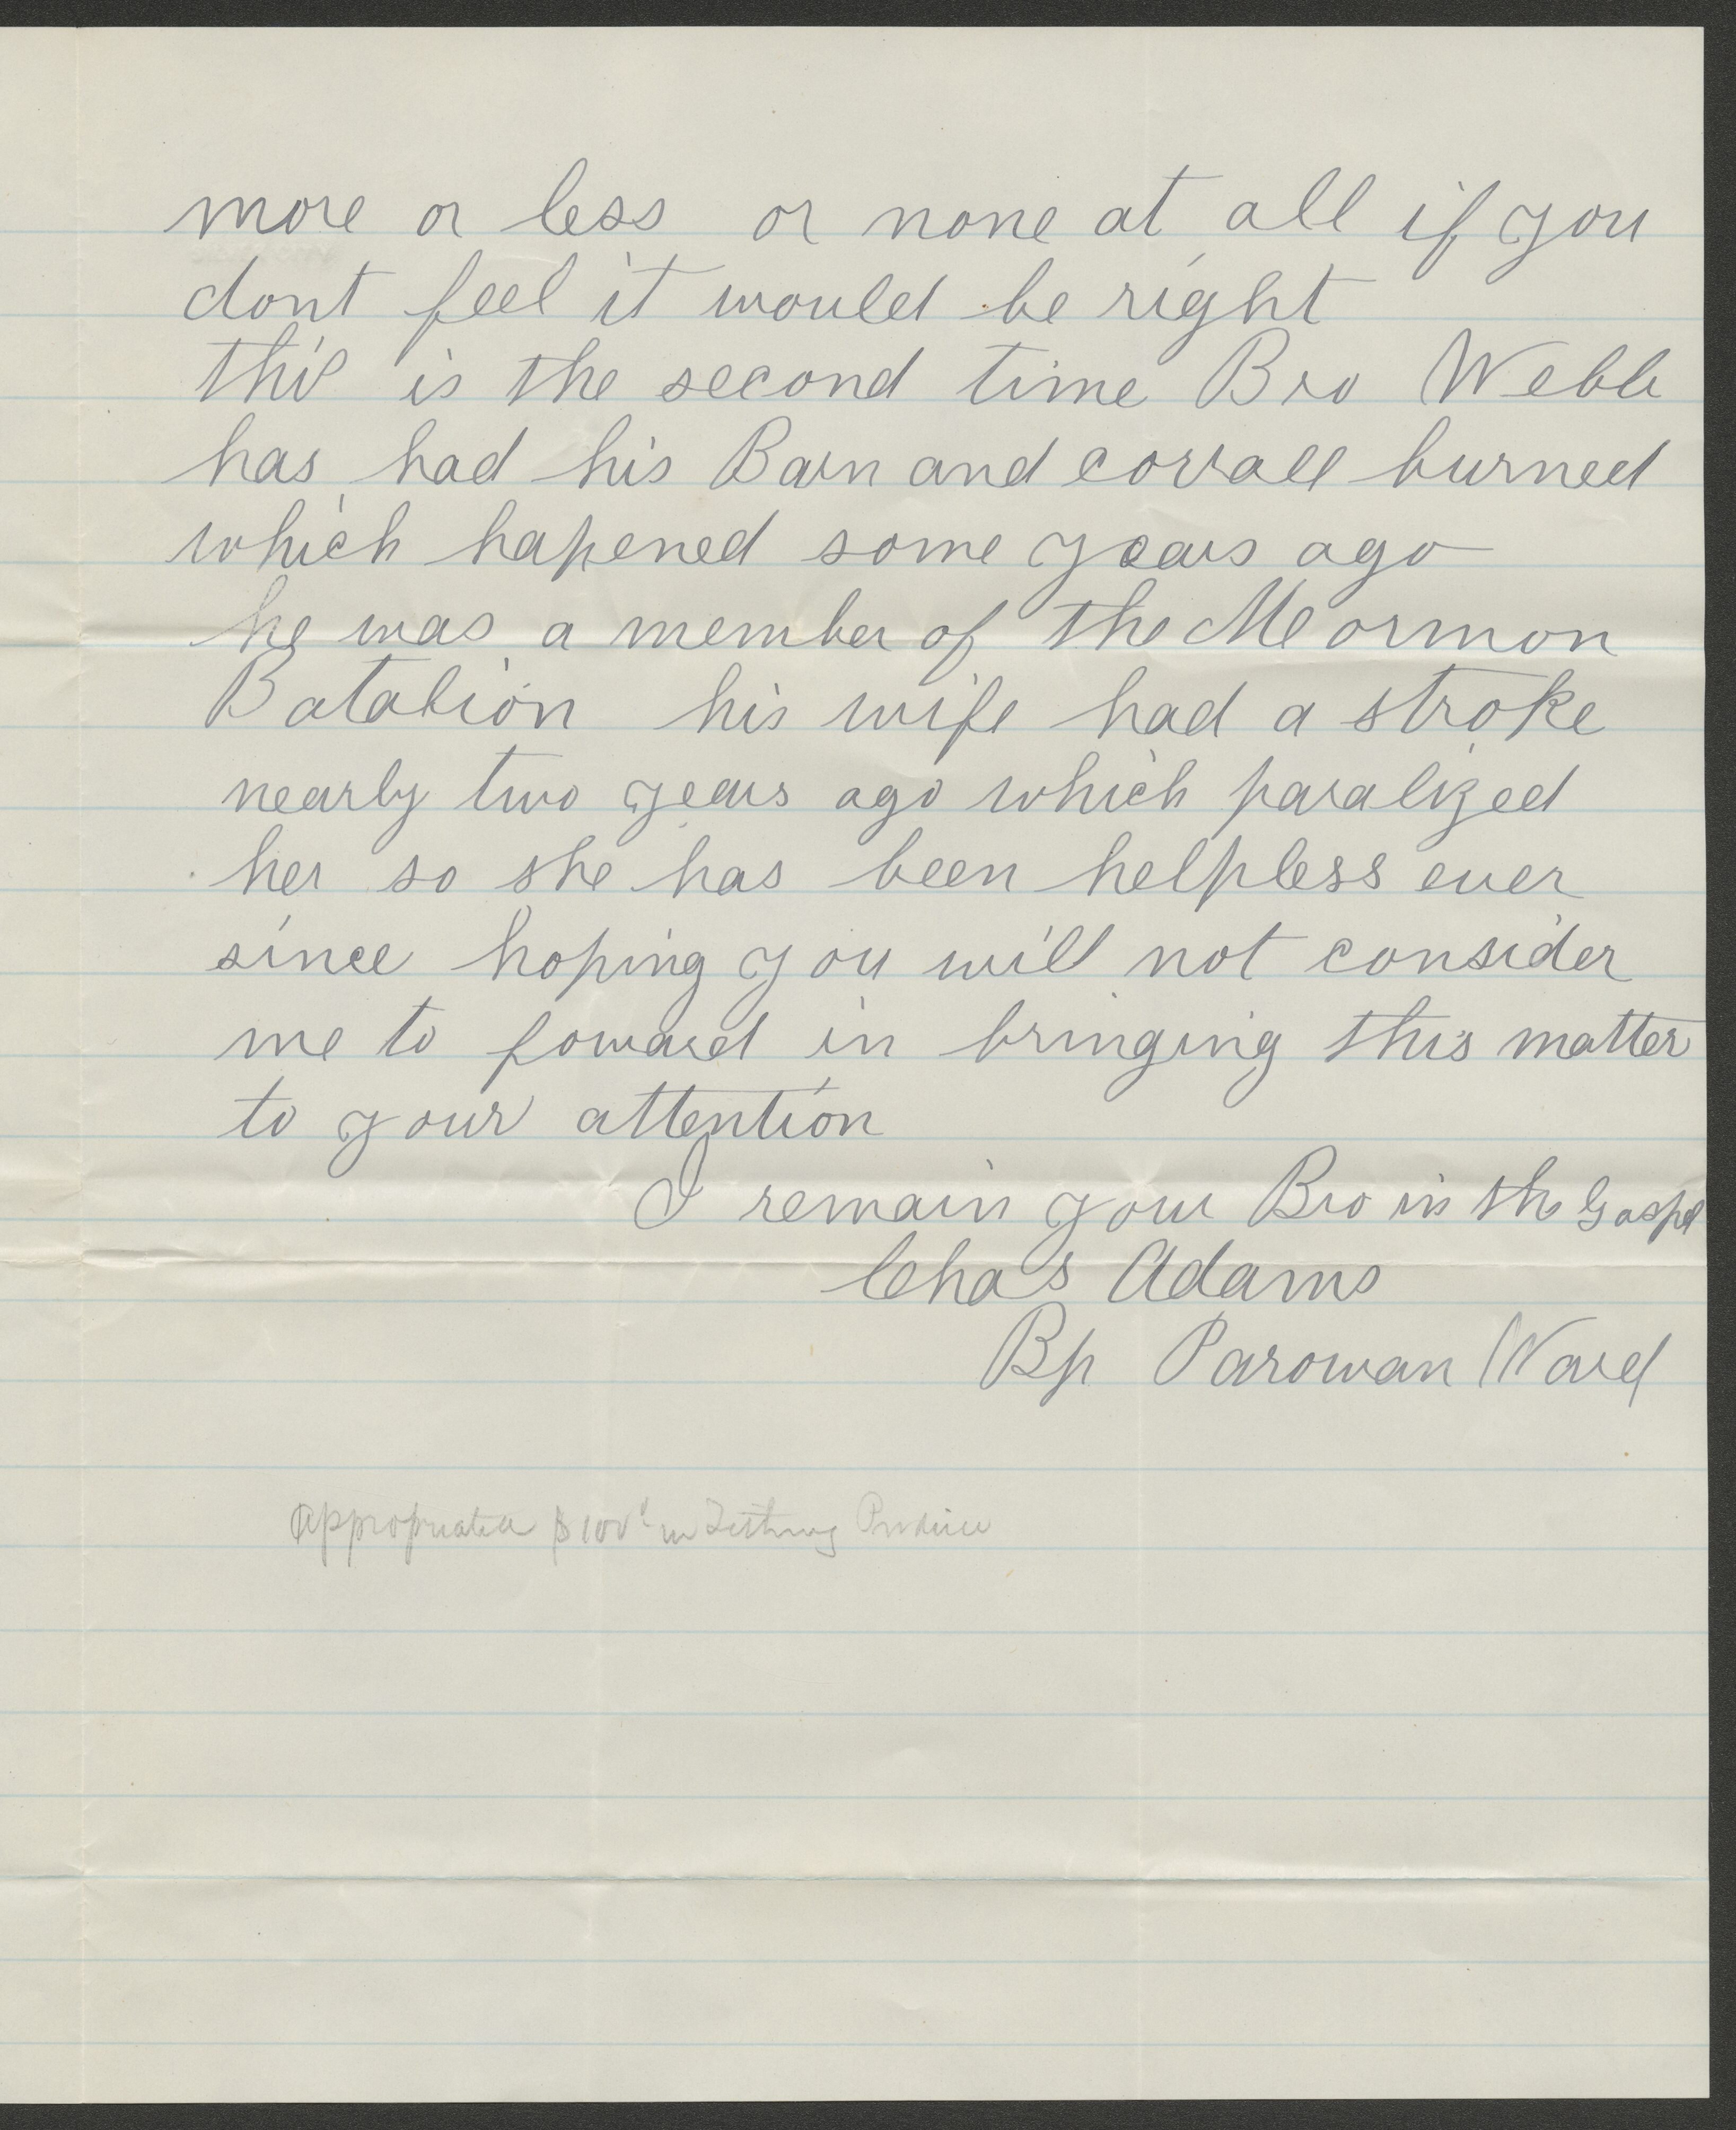 more or less or none at all if you
dont feel it would be right
this is the second time Bro Webb
has had his Barn and corrall burned
which hapened some years ago
he was a member of the Mormon
Batalion his wife had a stroke
nearly two years ago which paralized
her so she has been helpless ever
since hoping you will not consider
me to foward in bringing this matter
to your attention
I remain your Bro in the Gospel
Chas Adams
Bp Parowan Ward
Appropriated $100 in Tithing Produce